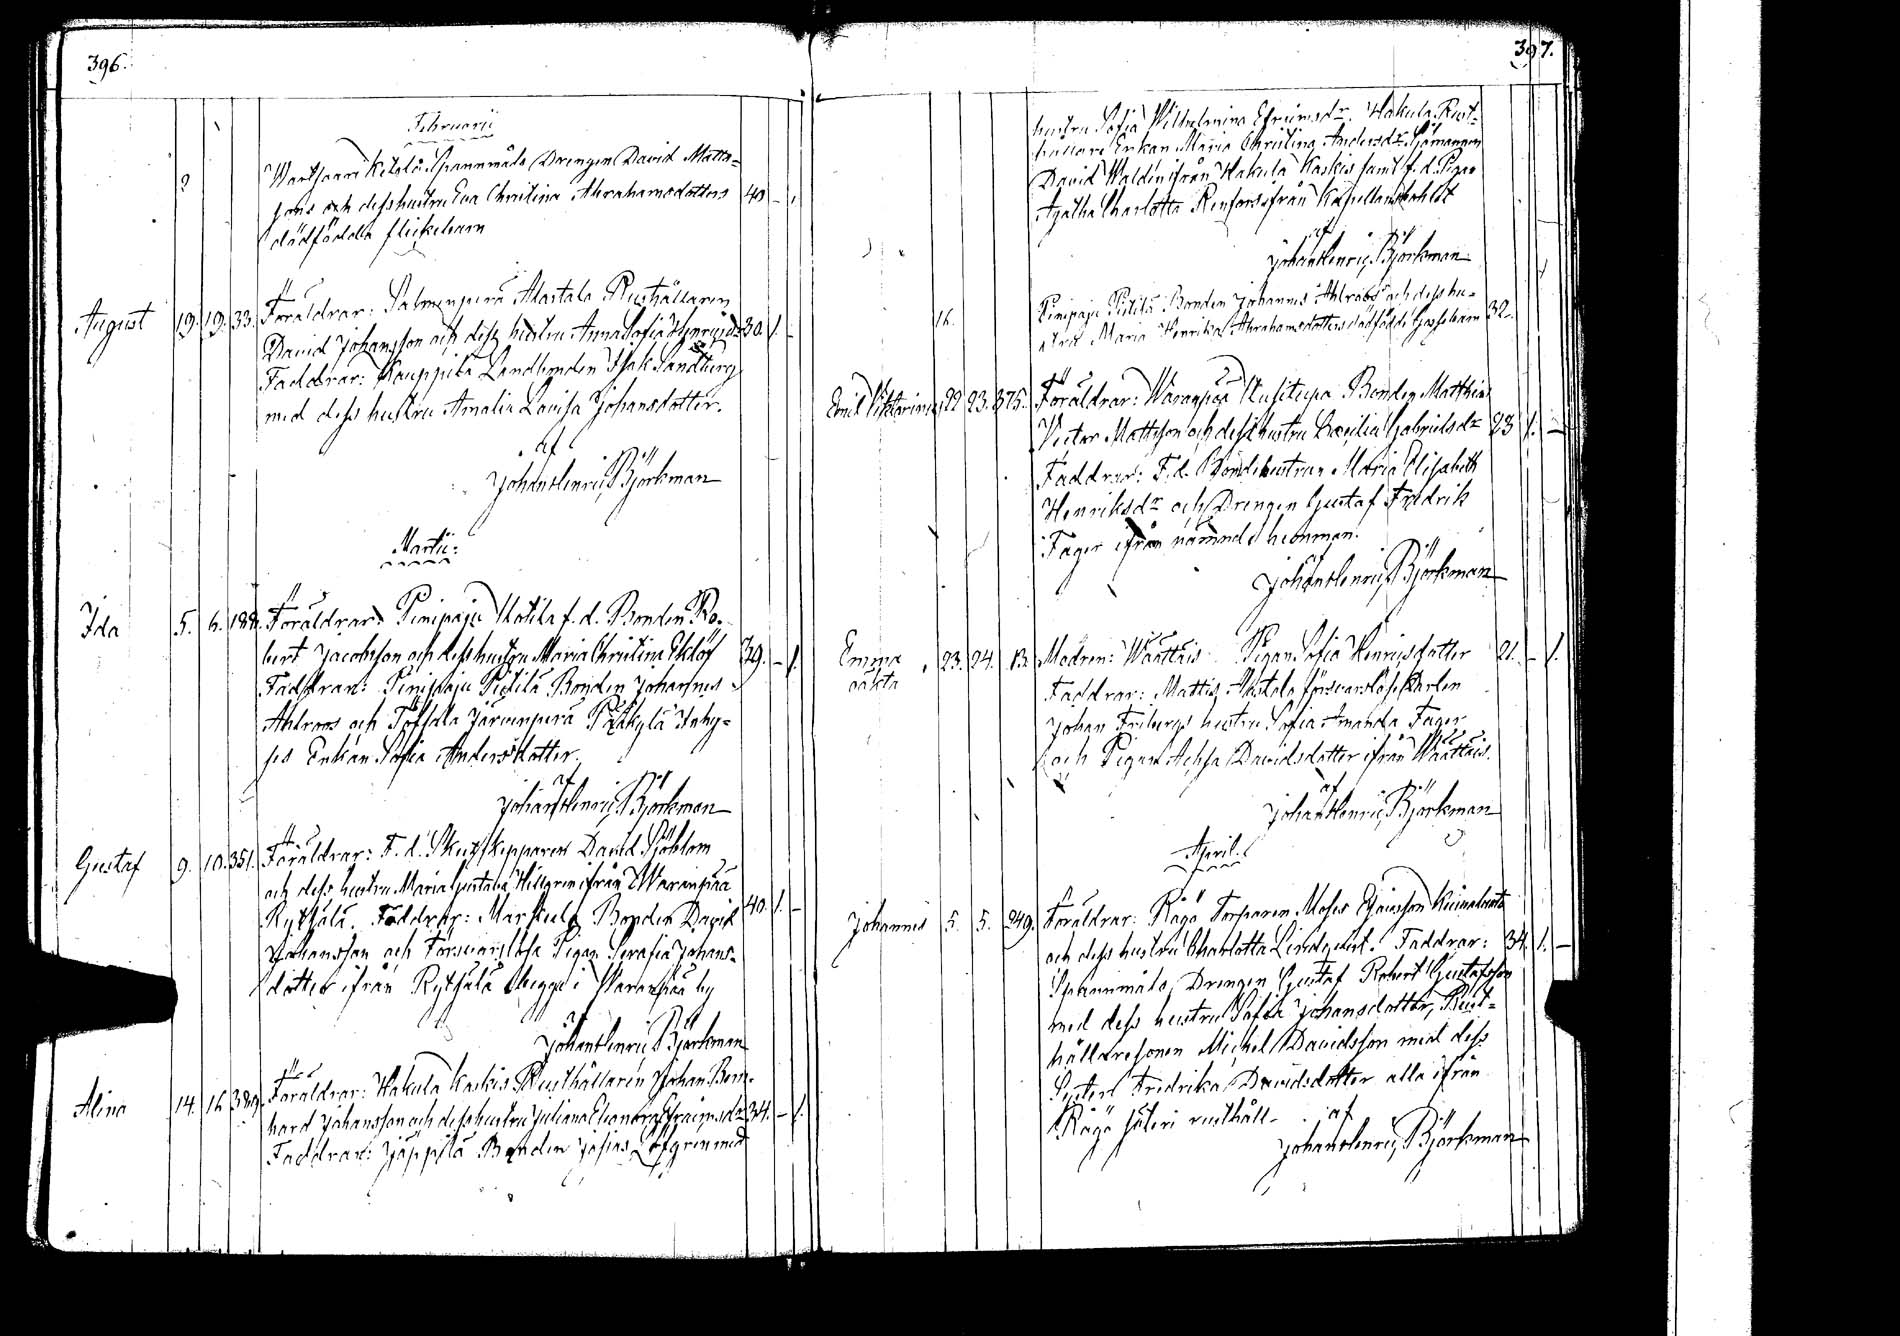 396.
Februarii
2 Wartsaari Ketola Spannmåls Drengen David Matts-
sons och dess hustru Eva Christina Abrahamsdotters 40 - 1
dödfödda flickebarn
August 19. 19. 33. Föräldrar: Salmenperä Alastalo Rusthållaren
David Johansson och dess hustru Anna Sofia Henricsdr 30. 1. -
Faddrar: Kauppila Landbonden Isak Sandberg
med dess hustru Amalia Lovisa Johansdotter.
af
Johan Henric Björkman
Martii:
Ida 5. 6. Föräldrar: Pinipaju Kotila f. d. Bonden Ro-
bert Jacobsson och dess hustru Maria Christina Eklöf 39. - 1.
Faddrar: Pinipaju Pietilä Bonden Johannes
Ahlroos och Töffala Järvenperä Präkylä Inhy-
ses Enkan Sofia Andersdotter.
af
Johan Henric Björkman
Gustaf 9. 10. 351. Föräldrar: F. d. Skutskepparen David Sjöblom
och dess hustru Maria Gustava Hellgren ifrån Waranpää
Rytsälä. Faddrar: Markula Bonden David 40. 1. -
Johansson och Forsvarslösa Pigan Serafia Johans-
dotter ifrån Rytsälä begge i Waranpää by
af
Johan Henric Björkman
Alina 14. 16. 389. Föräldrar: Hakula Kaskis Rusthållaren Johan Bern-
hard Johansson och dess hustru Juliana Eleonora Efraimsdr 34. - 1.
Faddrar: Jäppilä Bonden Josias Löfgren med
397.
hustru Sofia Wilhelmina Efraimsdr. Hakula Rust-
hållare Enkan Maria Christina Andersdr. Sjömannen
David Waldén ifrån Hakula Kaskis samt f. d. Pigan
Agatha Charlotta Renfors ifrån Kapellans bohlet
af
Johan Henric Björkman
16. Pinipaju Pietilä Bonden Johannes Ahlroos och dess hu-
stru Maria Henrika Abrahamsdotters dödfödde Gossebarn 32.
Emil Viktorinus 22 23. 375. Föräldrar: Waranpää Uusitupa Bonden Matthias
Victor Mattsson och dess hustru Cæcilia Gabrielsdr 23 1. -
Faddrar: F. d. Bondehustrun Maria Elisabeth
Henriksdr och Drengen Gustaf Fredrik
Fager ifrån nämnde hemman.
af
Johan Henric Björkman
Emma oäkta 23. 24. 13. Modren: Wäättäis Pigan Sofia Henricsdotter 21. - 1.
Faddrar: Mattis Alastalo försvarslöse Karlen
Johan Fribergs hustru Sofia Amanda Fager
och Pigan Achsa Davidsdotter ifrån Wäättäis.
af
Johan Henric Björkman
April.
Johannes 5. 5. 249. Föräldrar: Rågö Torparen Moses Esaiasson
och dess hustru Charlotta Lindqvist. Faddrar: 34. 1. -
Spannmåls Drengen Gustaf Robert Gustafsson
med dess hustru Sofia Johansdotter, Rust-
hållaresonen Michel Davidsson med dess
Syster Fredrika Davidsdotter alla ifrån
Rågö säteri rusthåll. af
Johan Henric Björkman